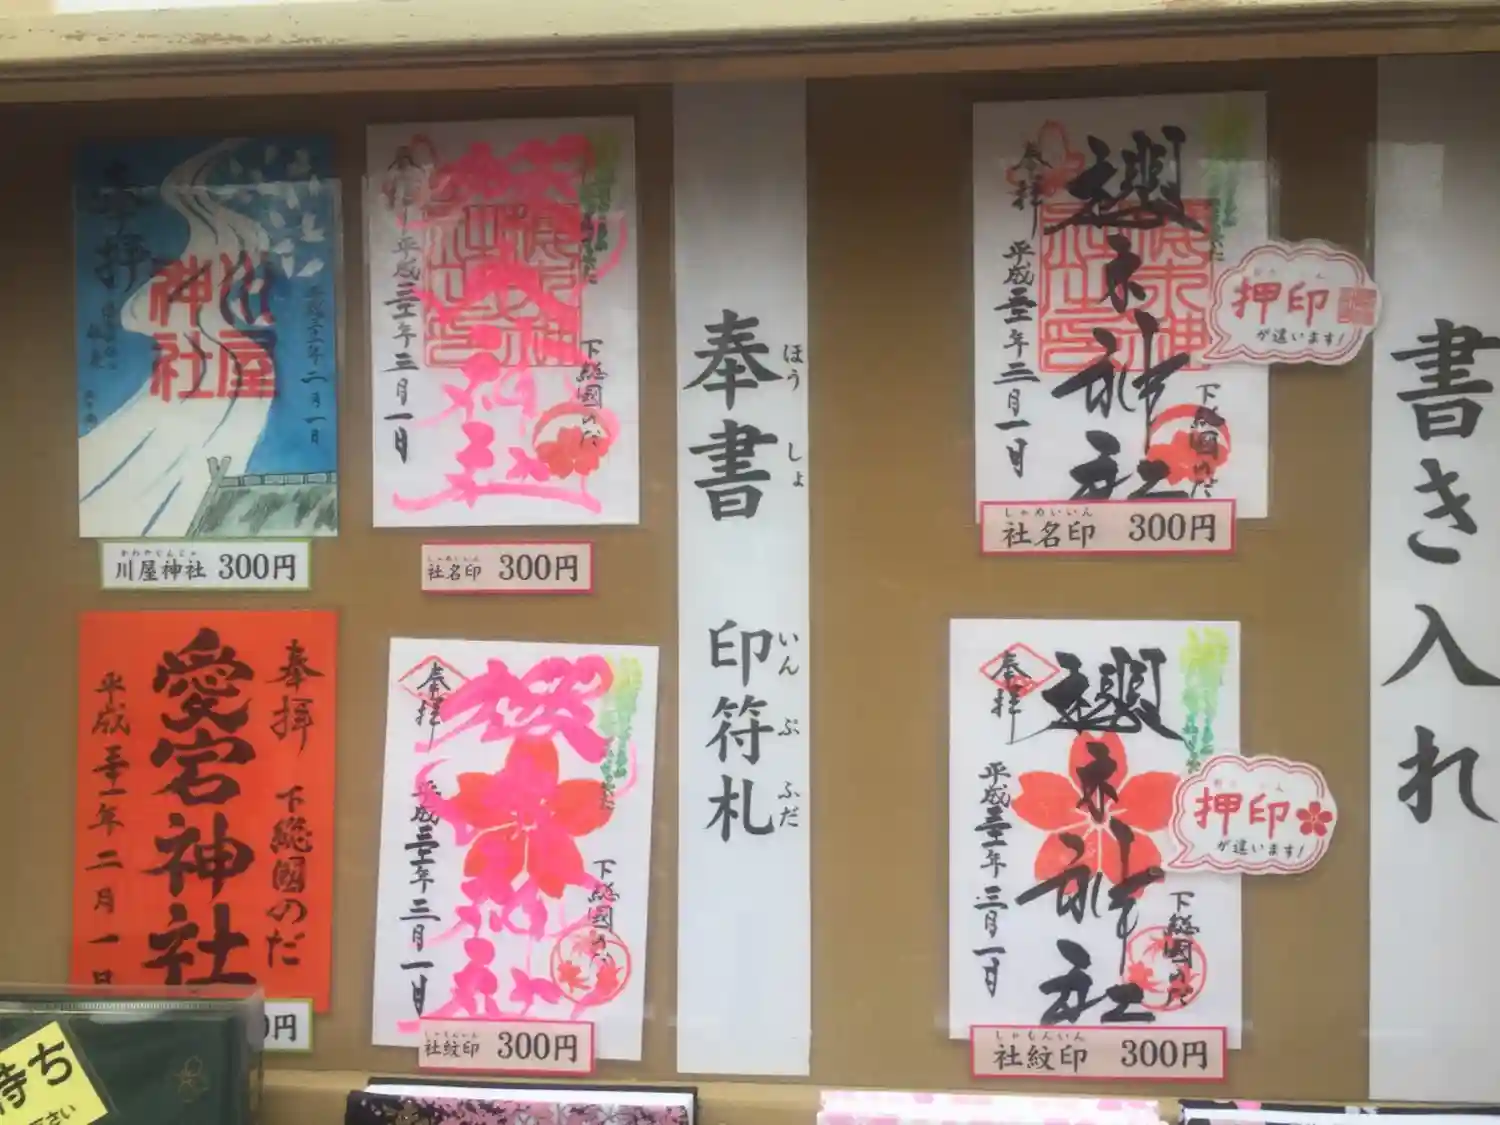 書き入れ
奉拝
櫻木神社
平成三十一年三月一日
下総國のだ
押印
が違います!
しゃめいいん
社名印 300円
奉拝
櫻木神社
平成三十一年三月一日
下総國のだ
押印
が違います!
しゃもんいん
社紋印 300円
奉書 印符札
ほうしょ いんぷふだ
奉拝
櫻木神社
平成三十一年三月一日
下総國のだ
しゃめいいん
社名印 300円
奉拝
櫻木神社
平成三十一年三月一日
下総國のだ
しゃもんいん
社紋印 300円
奉拝
川屋神社
平成三十一年二月一日
かわやじんじゃ
川屋神社 300円
奉拝
下総國のだ
愛宕神社
平成三十一年二月一日
0円
待ち
さい